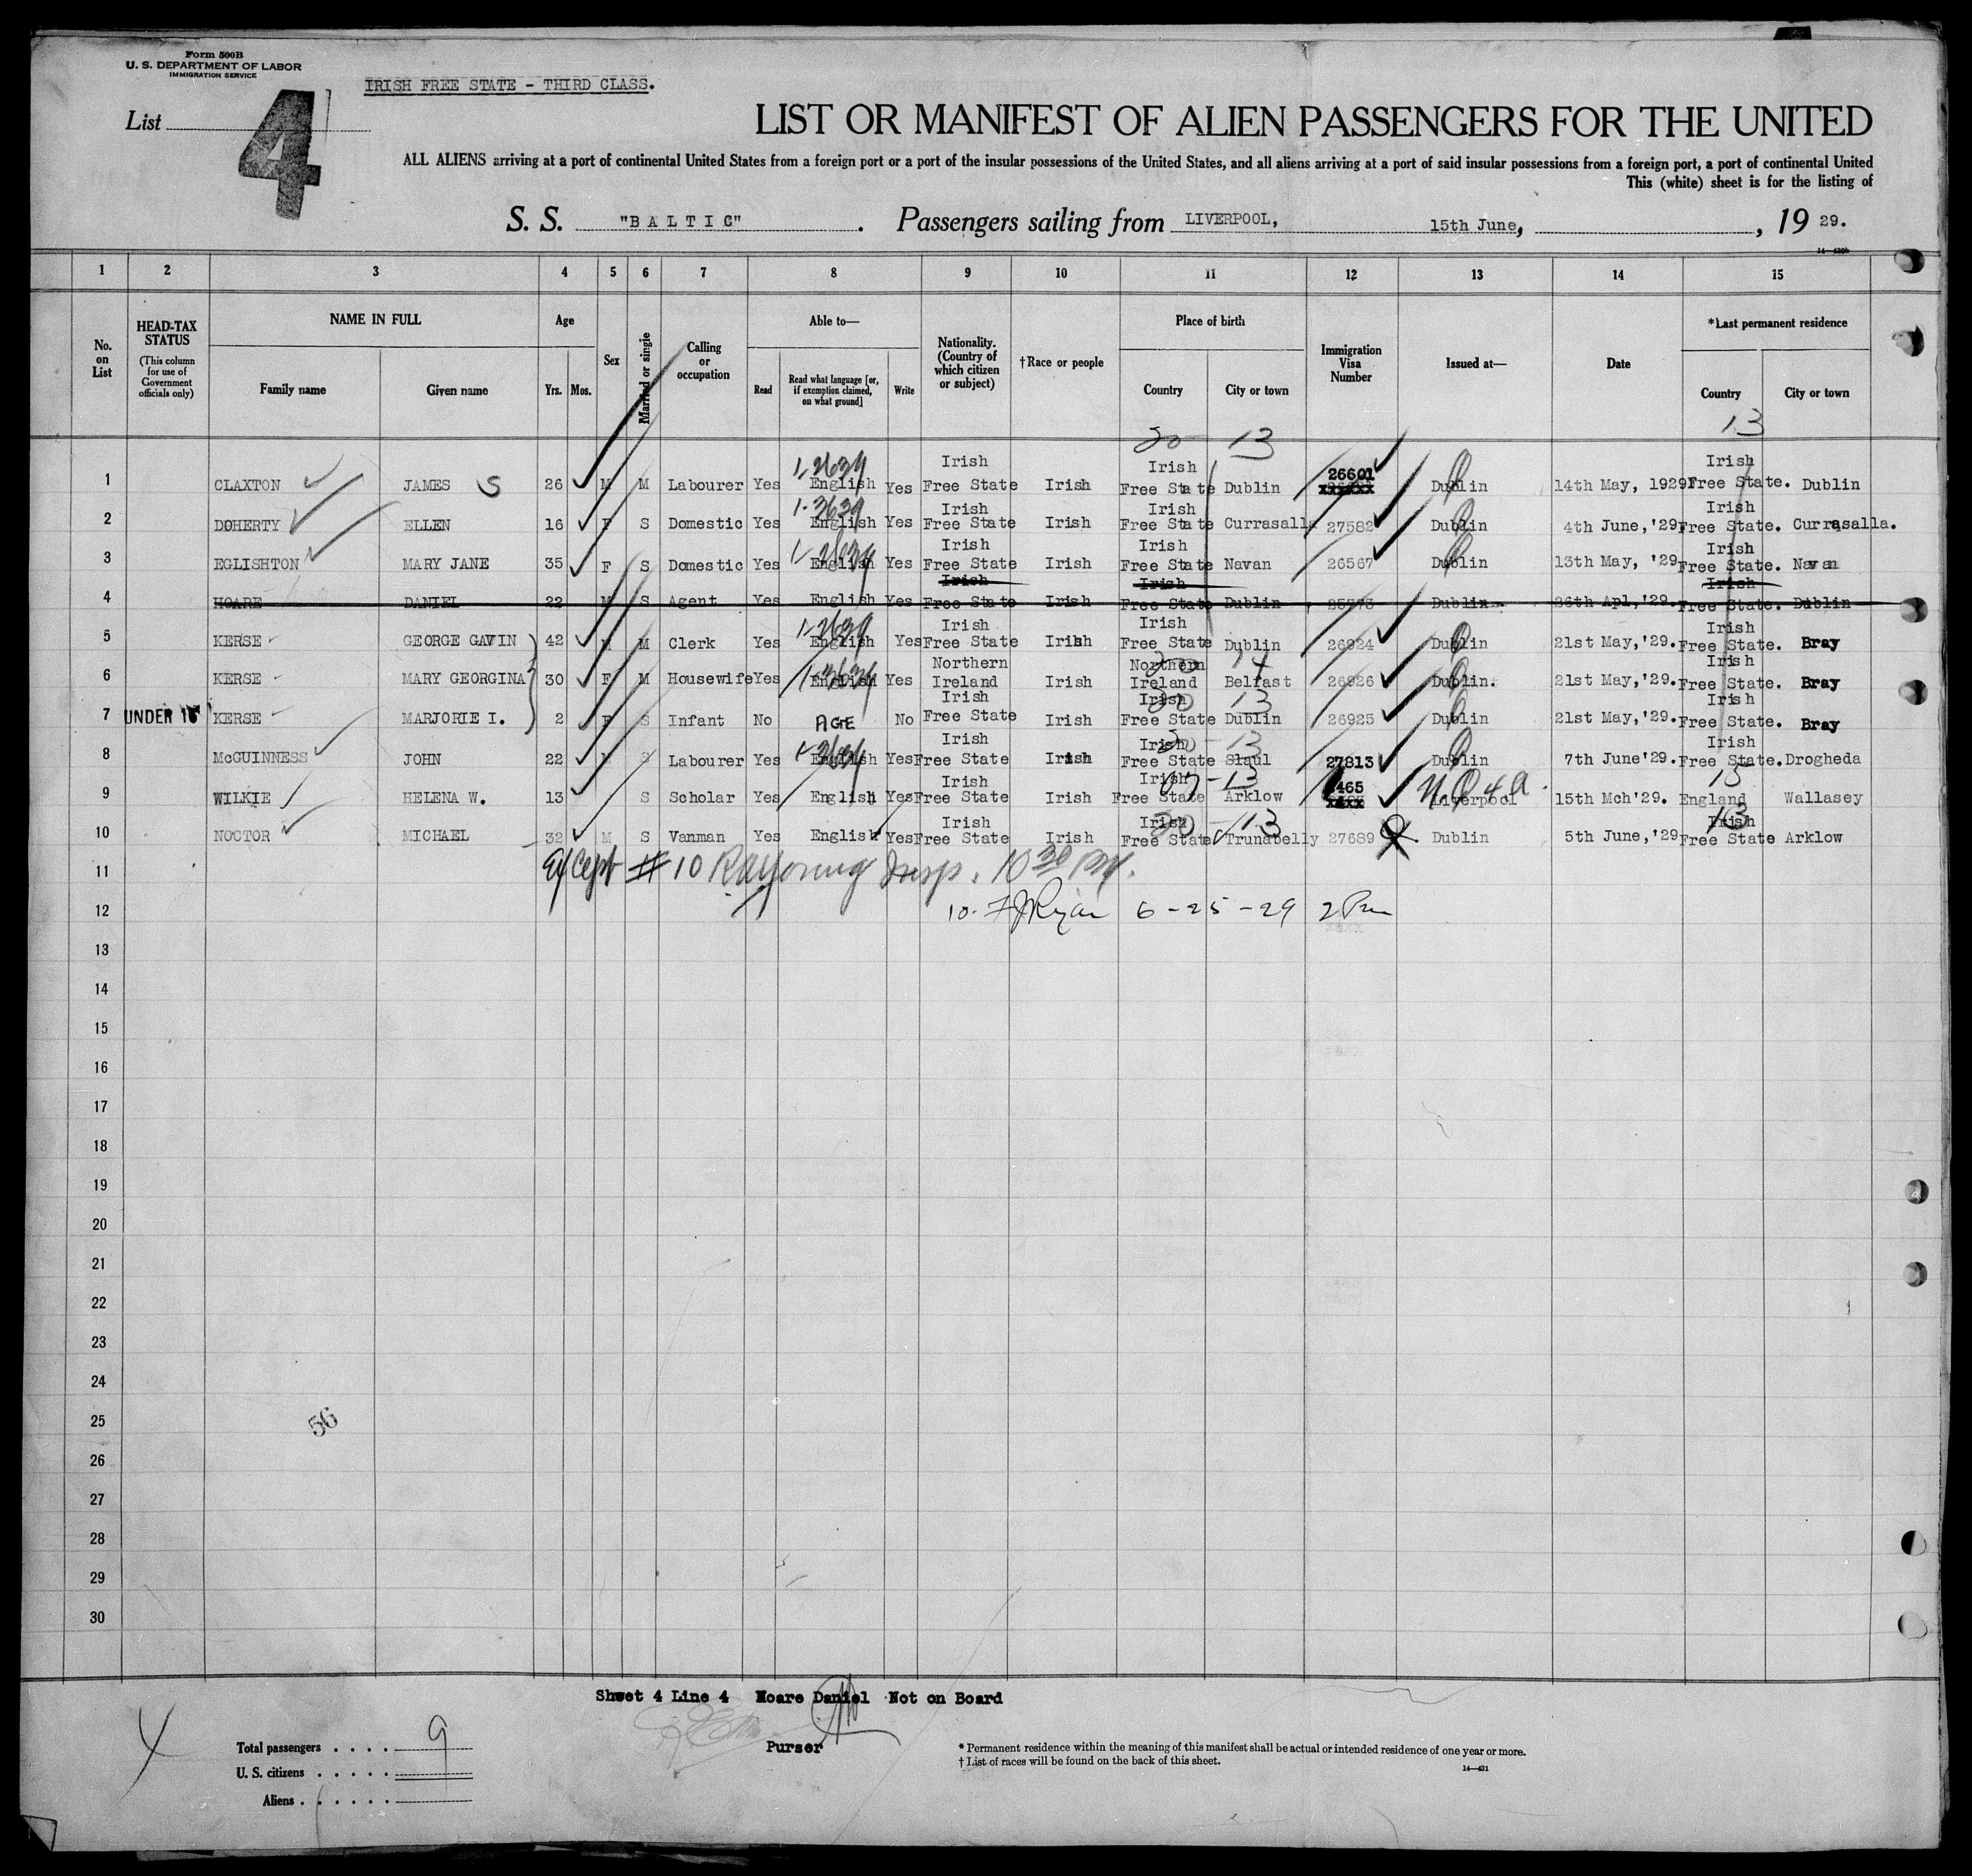 Form 500B
U. S. DEPARTMENT OF LABOR
IMMIGRATION SERVICE
IRISH FREE STATE - THIRD CLASS.
List 4
LIST OR MANIFEST OF ALIEN PASSENGERS FOR THE UNITED
ALL ALIENS arriving at a port of continental United States from a foreign port or a port of the insular possessions of the United States, and all aliens arriving at a port of said insular possessions from a foreign port, a port of continental United
This (white) sheet is for the listing of
S. S. "BALTIC". Passengers sailing from LIVERPOOL, 15th June, , 19 29.
1 2 3 4 5 6 7 8 9 10 11 12 13 14 15
No. on List
HEAD-TAX STATUS
(This column for use of Government officials only)
NAME IN FULL
Family name Given name
Age
Yrs. Mos.
Sex
Married or single
Calling or occupation
Able to—
Read Read what language [or, if exemption claimed, on what ground] Write
Nationality. (Country of which citizen or subject)
†Race or people
Place of birth
Country City or town
Immigration Visa Number
Issued at—
Date
*Last permanent residence
Country City or town
20 13 13
1 CLAXTON JAMES S 26 M M Labourer Yes English Yes Irish Free State Irish Irish Free State Dublin 26601 Dublin 14th May, 1929 Irish Free State. Dublin
2 DOHERTY ELLEN 16 F S Domestic Yes English Yes Irish Free State Irish Irish Free State Currasalla 27582 Dublin 4th June,'29 Irish Free State. Currasalla.
3 EGLISHTON MARY JANE 35 F S Domestic Yes English Yes Irish Free State Irish Irish Free State Navan 26567 Dublin 13th May, '29 Irish Free State. Navan
4 HOARE DANIEL 22 M S Agent Yes English Yes Irish Free State Irish Irish Free State Dublin Dublin. 26th Apl,'29. Irish Free State. Dublin
5 KERSE GEORGE GAVIN 42 M M Clerk Yes English Yes Irish Free State Irish Irish Free State Dublin 26924 Dublin 21st May,'29. Irish Free State. Bray
6 KERSE MARY GEORGINA 30 F M Housewife Yes English Yes Northern Ireland Irish Northern Ireland Belfast 26926 Dublin. 21st May,'29. Irish Free State. Bray
7 UNDER 16 KERSE MARJORIE I. 2 F S Infant No AGE No Irish Free State Irish Irish Free State Dublin 26925 Dublin 21st May,'29. Irish Free State. Bray
8 McGUINNESS JOHN 22 M S Labourer Yes English Yes Irish Free State Irish Irish Free State Slaul 27813 Dublin 7th June'29. Irish Free State. Drogheda
9 WILKIE HELENA W. 13 S Scholar Yes English Yes Irish Free State Irish Irish Free State Arklow 465 Liverpool 15th Mch'29. England Wallasey
10 NOCTOR MICHAEL 32 M S Vanman Yes English Yes Irish Free State Irish Irish Free State Trunabelly 27689 Dublin 5th June,'29 Irish Free State Arklow
11 Except # 10 Insp. 10 30 PM.
12 10. FJRyan 6-25-29 2 Pm
13
14
15
16
17
18
19
20
21
22
23
24
25
56
26
27
28
29
30
Sheet 4 Line 4 Hoare Daniel Not on Board
Purser
Total passengers . . . . 9
U. S. citizens . . . . .
Aliens . . . . . .
* Permanent residence within the meaning of this manifest shall be actual or intended residence of one year or more.
† List of races will be found on the back of this sheet.
14—431